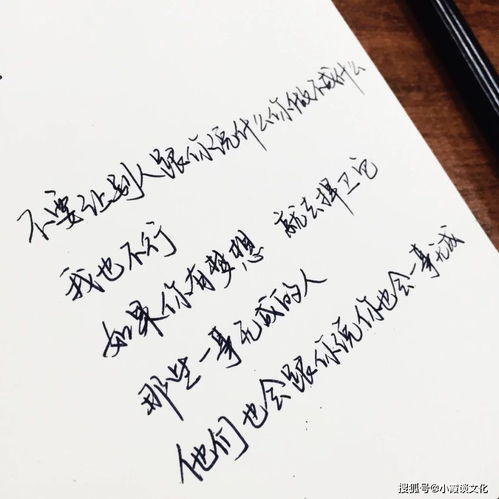 不要让别人跟你说什么你做不成什么
我也不行
如果你有梦想 就去捍卫它
那些一事无成的人
他们也会跟你说你也会一事无成
搜狐号@小霞谈文化